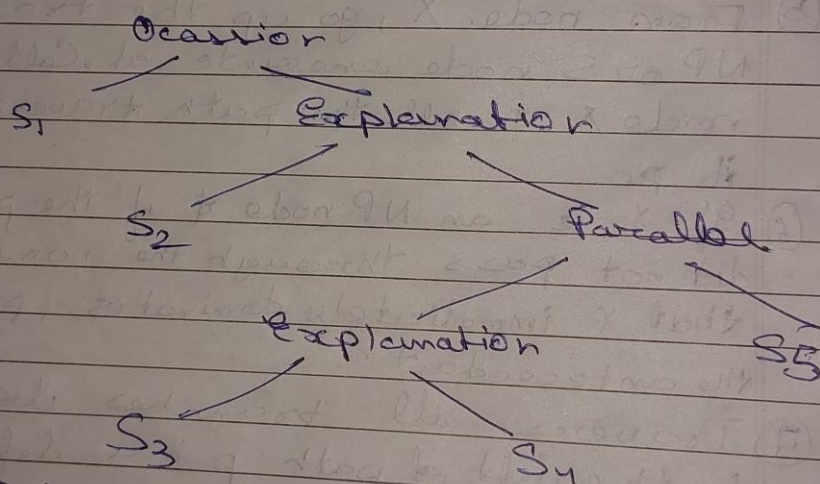 Ocassior
S1 Explanation
S2 Parallel
Explanation S5
S3 S4